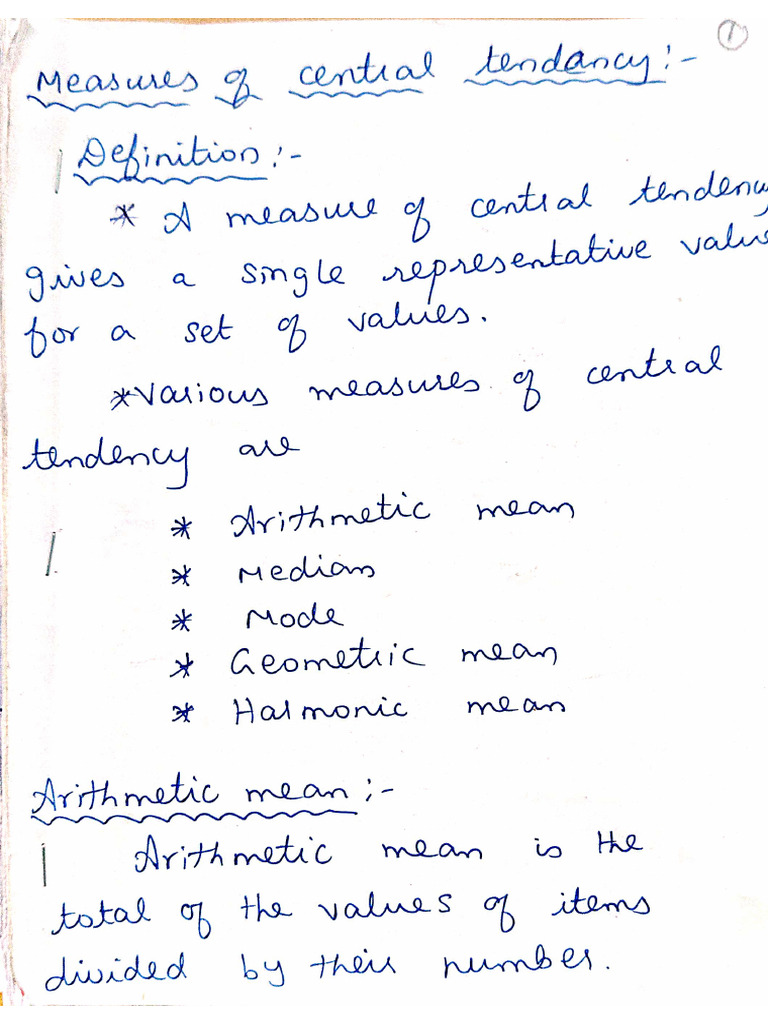 ①
Measures of central tendancy:-
Definition:-
* A measure of central tendency
gives a single representative value
for a set of values.
* Various measures of central
tendency are
* Arithmetic mean
* Median
* Mode
* Geometric mean
* Harmonic mean
Arithmetic mean:-
Arithmetic mean is the
total of the values of items
divided by their number.